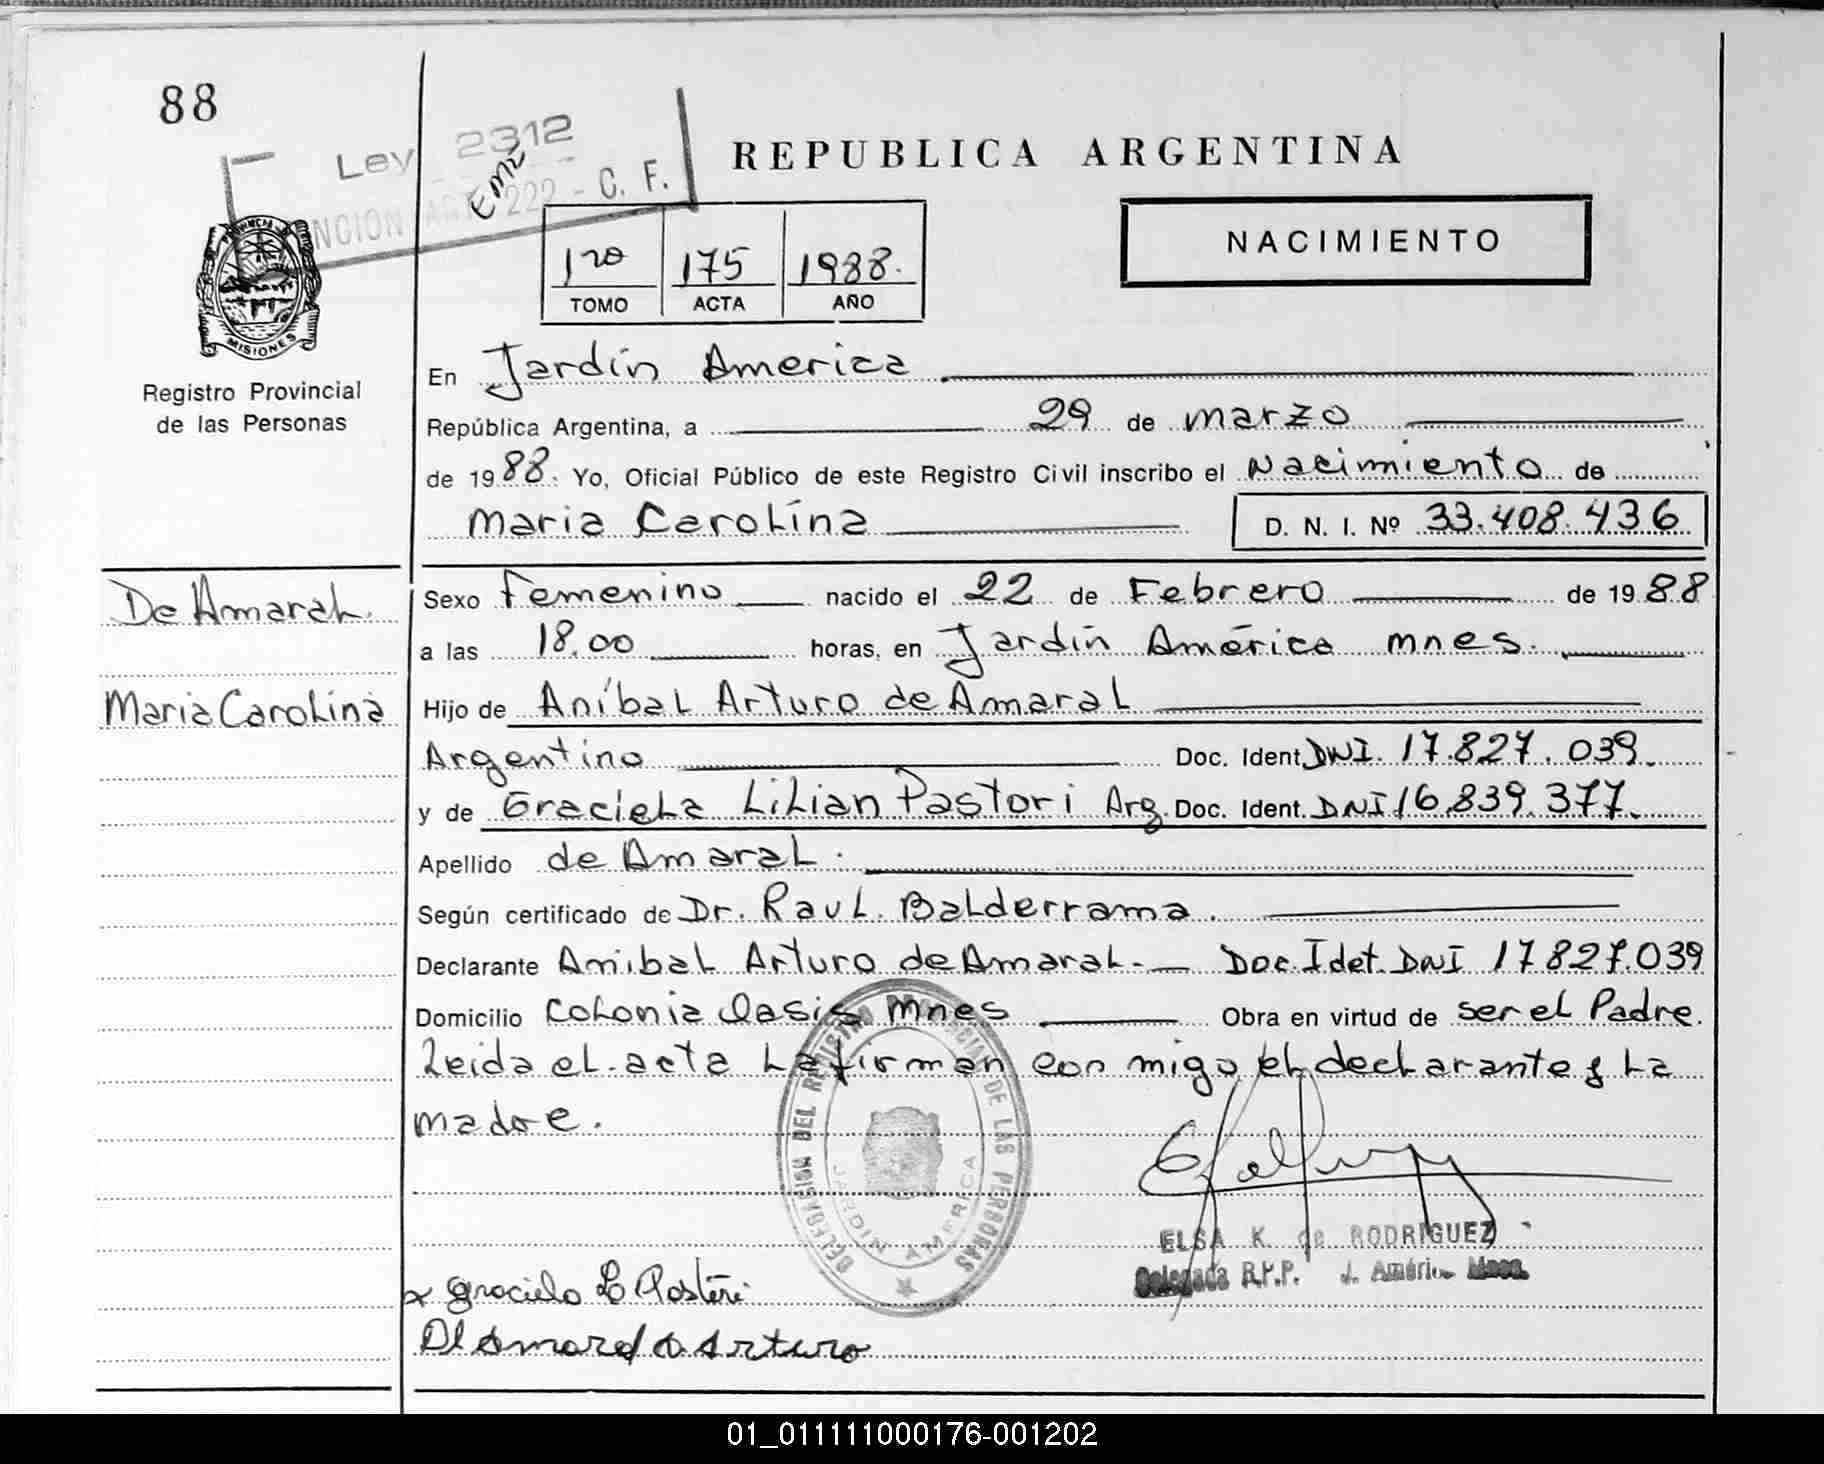 88
Ley 2312
ART 222 - C. F.
REPUBLICA ARGENTINA
NACIMIENTO
1ro 175 1988.
TOMO ACTA AÑO
MISIONES
Registro Provincial
de las Personas
En Jardín America
República Argentina, a 29 de marzo
de 1988. Yo, Oficial Público de este Registro Civil inscribo el Nacimiento de
Maria Carolina D. N. I. Nº 33.408.436
De Amaral.
Maria Carolina
Sexo Femenino nacido el 22 de Febrero de 1988
a las 18.00 horas, en Jardín América mnes.
Hijo de Aníbal Arturo de Amaral
Argentino Doc. Ident. DNI. 17.827.039.
y de Graciela Lilian Pastori Arg. Doc. Ident. DNI 16.839.377.
Apellido de Amaral.
Según certificado de Dr. Raul Balderrama.
Declarante Anibal Arturo de Amaral. Doc. Idet. DNI 17827.039
Domicilio Colonia Oasis mnes Obra en virtud de ser el Padre.
Leida el acta la firman con migo el declarante y la
madre.
DELEGACION DEL REGISTRO PROVINCIAL DE LAS PERSONAS
JARDIN AMERICA
ELSA K. de RODRIGUEZ
Delegada R.P.P. J. América Mnes.
x Graciela L Pastori
De Amaral A. Arturo
01_011111000176-001202